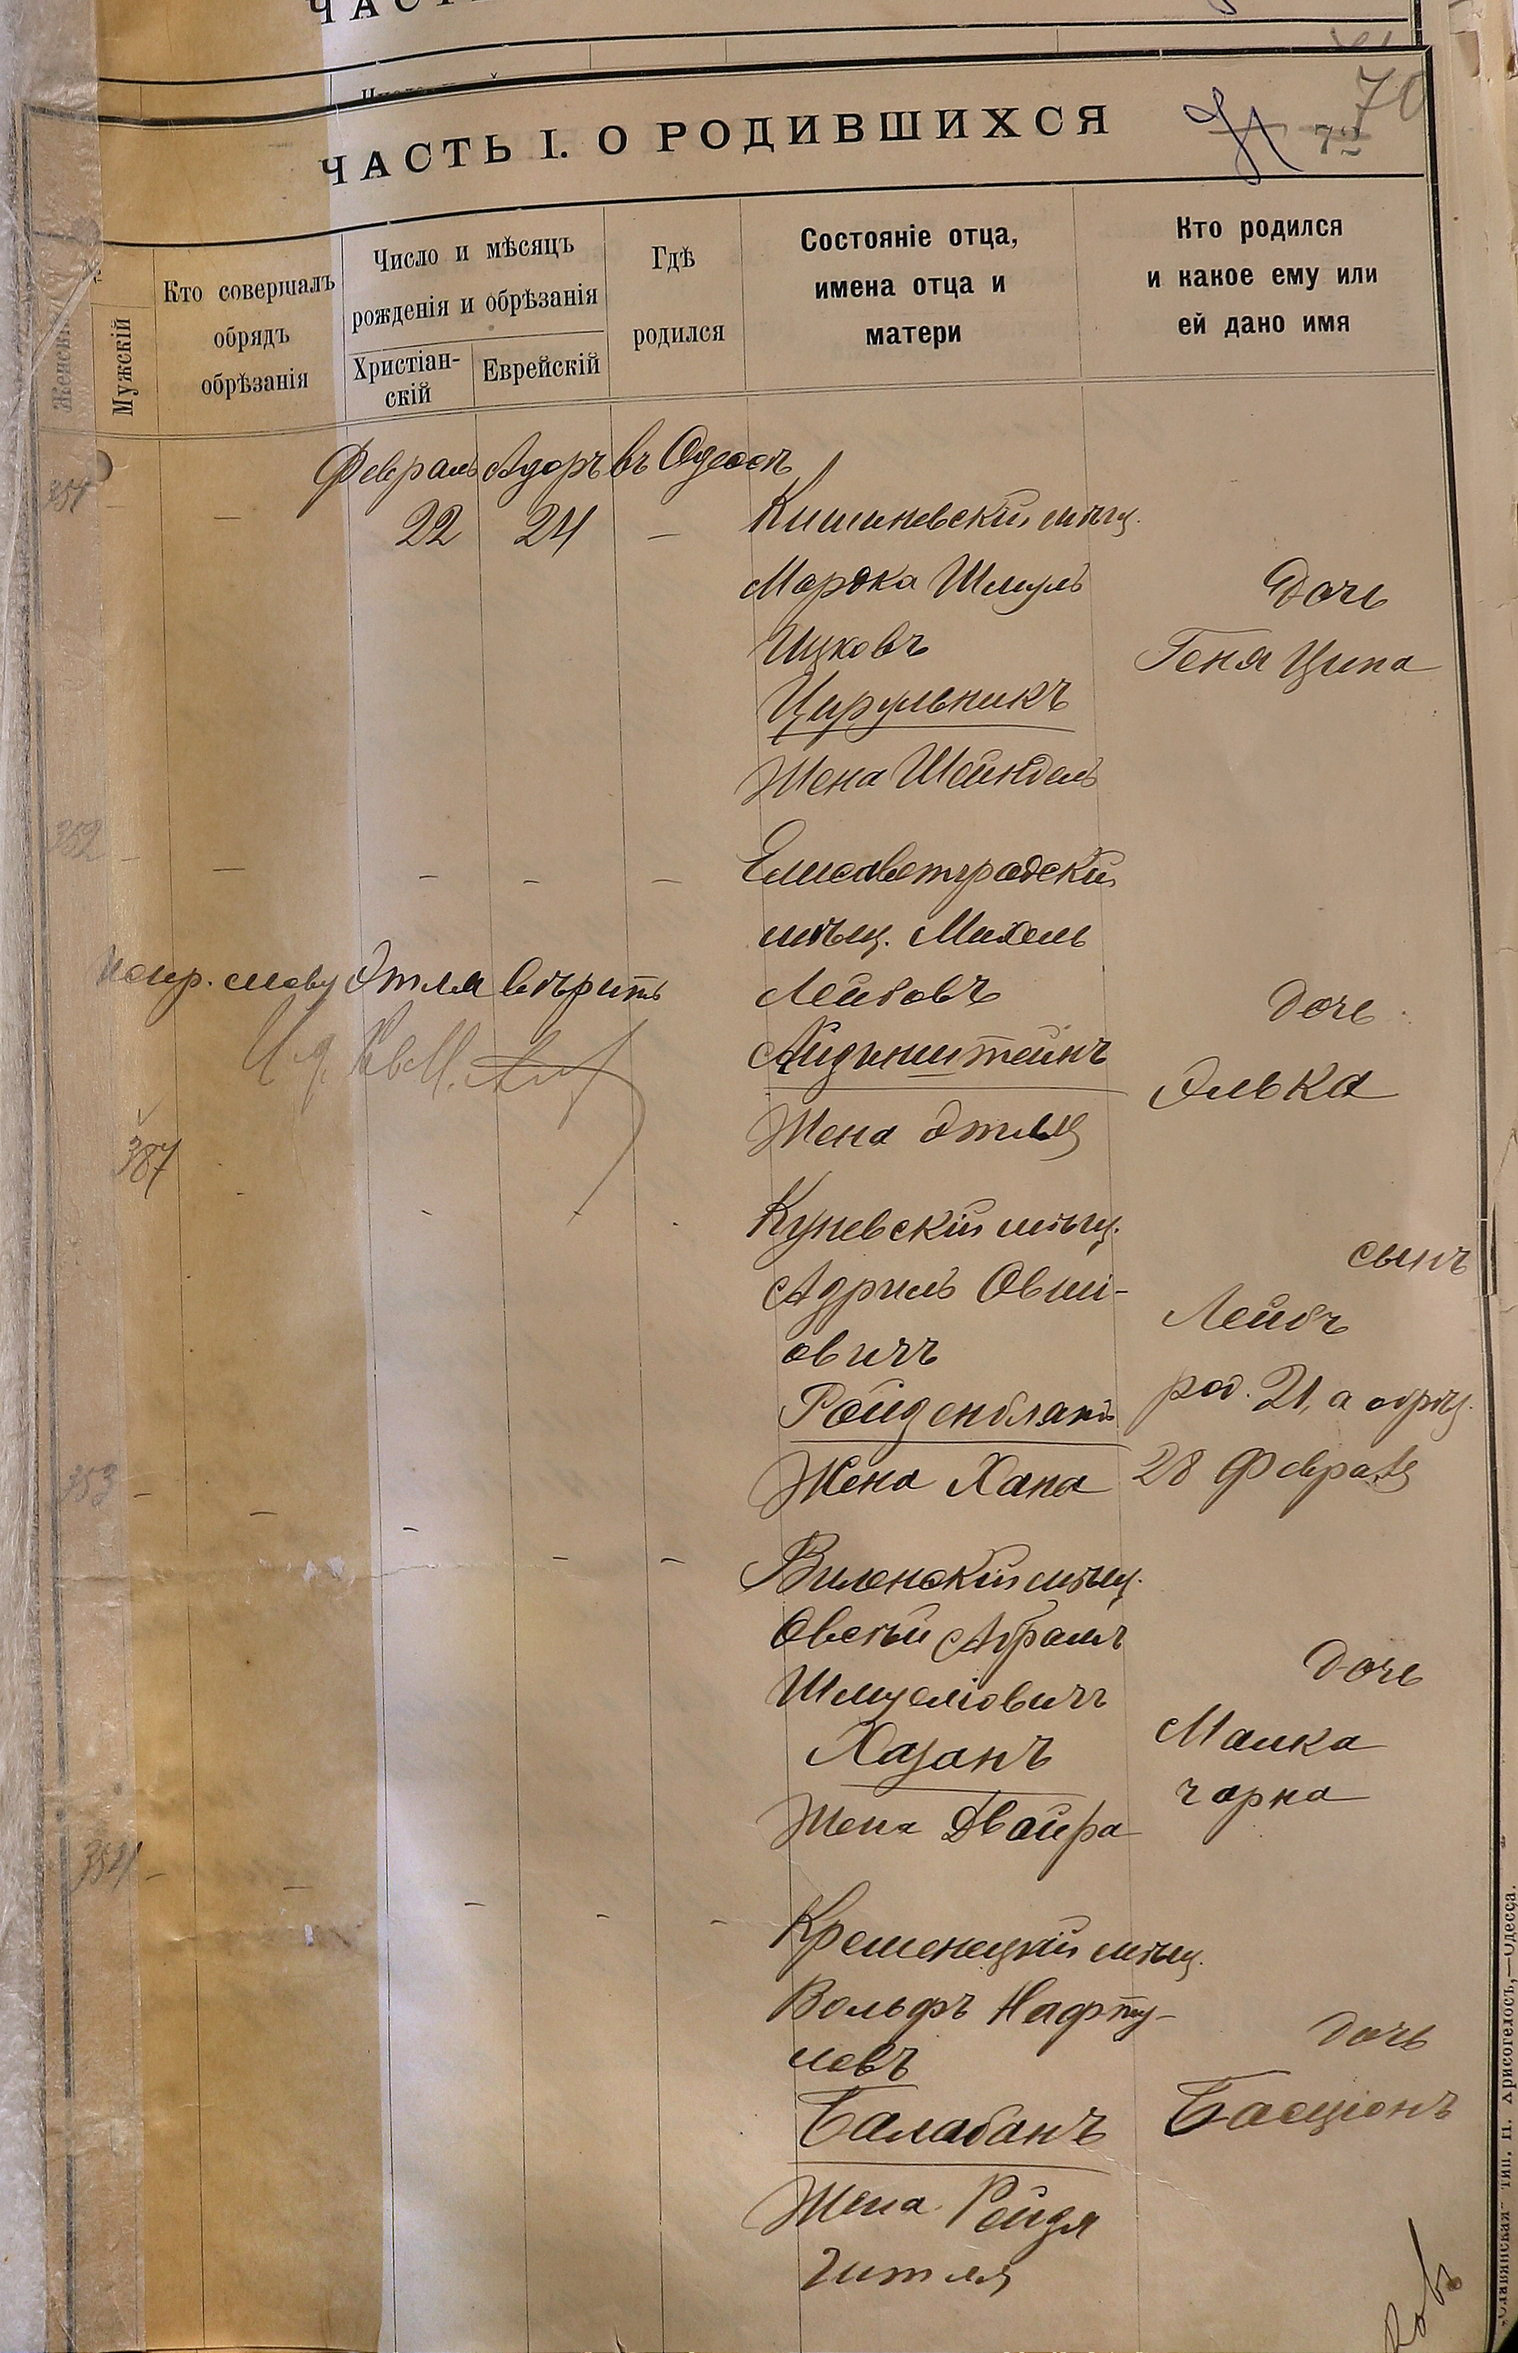 ЧАСТЬ I. О РОДИВШИХСЯ
70
Женскій
Мужскій
Кто совершалъ
обрядъ
обрѣзанія
Число и мѣсяцъ
рожденія и обрѣзанія
Христіан-
скій
Еврейскій
Гдѣ
родился
Состояніе отца,
имена отца и
матери
Кто родился
и какое ему или
ей дано имя
Февраль Адаръ въ Одессѣ
351 – – 22 24 – Кишиневскій мѣщ.
Мордка Шмуль
Ицковъ
Цирульникъ
Жена Шейндель
Дочь
Геня Ципа
352 – – – – – Елисаветградскій
мѣщ. Михель
Лейбовъ
Айзенштейнъ
Жена Этля
дочь
Элька
испр. слову Этля вѣрить
387
Куневскій мѣщ.
Адриль Овші-
овичъ
Ройзенблатъ
Жена Хана
сынъ
Лейбъ
род. 21, а обрѣз.
28 Февраля
353 – – – – –
Виленскій мѣщ.
Овсѣй Абрамъ
Шмуеліовичъ
Хазанъ
Жена Двойра
дочь
Малка
Чарна
354 – – – – –
Кременецкій мѣщ.
Вольфъ Нафту-
ловъ
Балабанъ
Жена Рейзя
Гитля
дочь
Басціонъ
„Славянская" тип. Н. Хрисогелосъ,—Одесса.